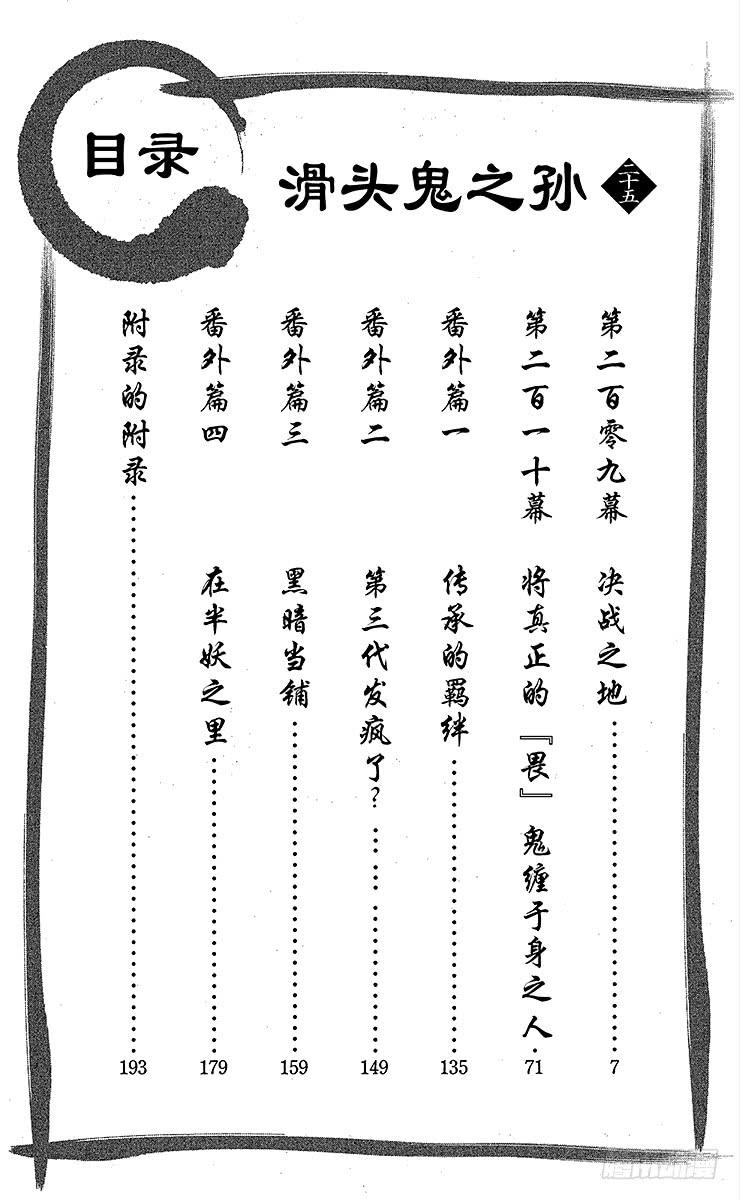 目录
滑头鬼之孙 二十五
第二百零九幕 决战之地……7
第二百一十幕 将真正的『畏』鬼缠于身之人…71
番外篇一 传承的羁绊……135
番外篇二 第三代发疯了?……149
番外篇三 黑暗当铺……159
番外篇四 在半妖之里……179
附录的附录……193